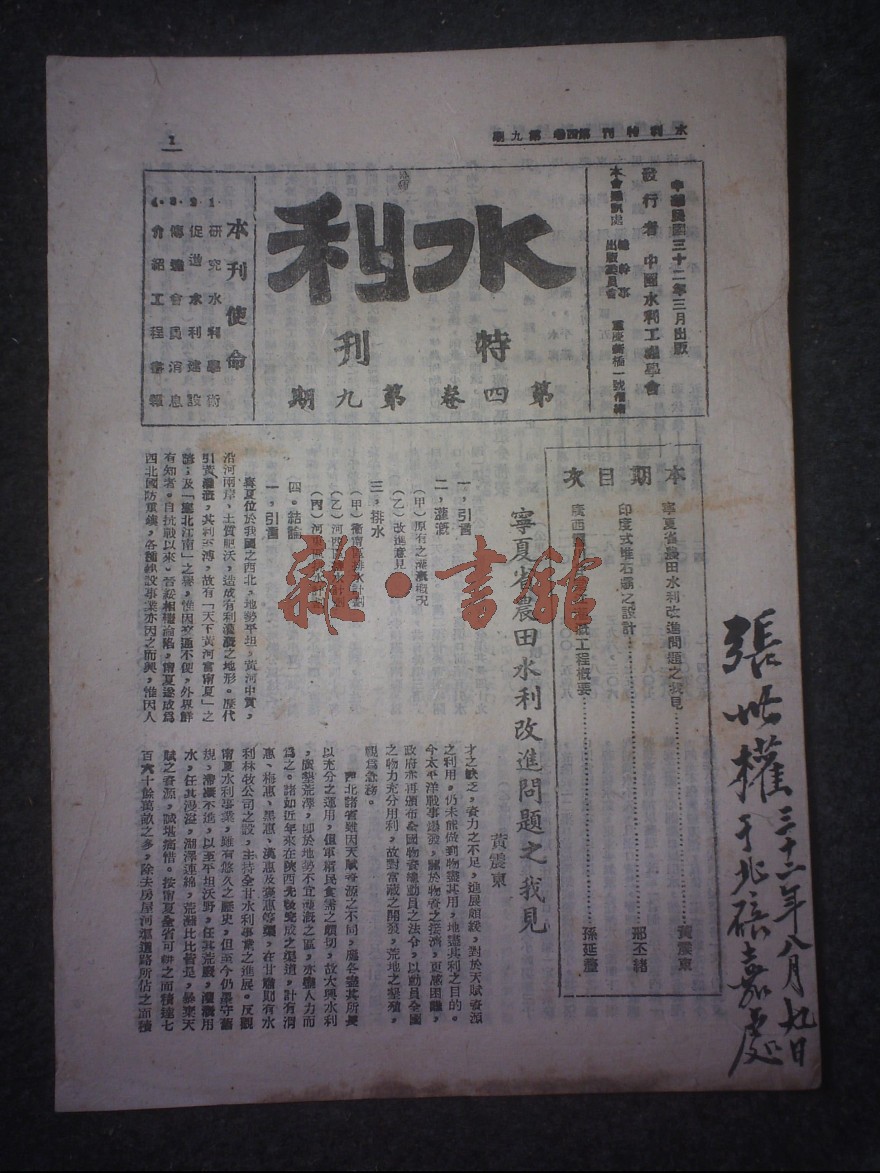 水利特刊第四卷第九期
1
中華民國三十二年三月出版
發行者 中國水利工程學會
本會
總幹事
出版委員會
水利
特刊
第四卷第九期
本刊使命
1. 研究水利學術
2. 促進水利建設
3. 傳達會員消息
4. 介紹工程書報
本期目次
寧夏省農田水利改進問題之我見 黃震東
印度式堆石壩之設計 邢丕緒
廣西 工程概要 孫延
寧夏省農田水利改進問題之我見
黃震東
一，引言
二，灌溉
（甲）原有之灌溉概況
（乙）改進意見
三，排水
（甲）衛甯區排水計劃
（乙）河西區排水計劃
（丙）河東區排水計劃
四。結論
一，引言
甯夏位於我國之西北，地勢平坦，黃河中貫，
沿河兩岸，土質肥沃，造成有利灌溉之地形。歷代
引黃灌溉，其利至溥，故有「天下黃河富甯夏」之
諺；及「塞北江南」之譽，惟因交通不便，外界鮮
有知者。自抗戰以來，晉綏相繼淪陷，甯夏遂成為
西北國防重鎮，各種建設事業亦因之而興，惟因人
才之缺乏，資力之不足，進展頗緩，對於天賦資源
之利用，仍未能做到物盡其用，地盡其利之目的。
今太平洋戰事爆發，關於物資之接濟，更感困難，
政府亦再頒布全國物資總動員之法令，以動員全國
之物力充分用利，故對富藏之開發，荒地之墾殖，
視為急務。
西北諸省雖因天賦資源之不同，應各盡其所長
以充分之運用，但軍糈民食需之頗切，故大興水利
，廣墾荒澤，即於地勢不宜灌溉之區，亦盡人力而
為之。諸如近年來在陝西先後完成之渠道，計有渭
惠、梅惠、黑惠、漢惠及褒惠等渠，在甘肅則有水
利林牧公司之設，主持全甘水利事業之進展。反觀
甯夏水利事業，雖有悠久之歷史，但至今仍墨守舊
規，滯凝不進，以至平坦沃野，任其荒廢，灌溉用
水，任其漫溢，湖澤連綿，荒灘比比皆是，暴棄天
賦之資源，誠堪痛惜。按甯夏全省可耕之面積達七
百六十餘萬畝之多，除去房屋河渠道路所佔之面積
張世權
三十二年八月九日
于北碚嘉
雜·書館